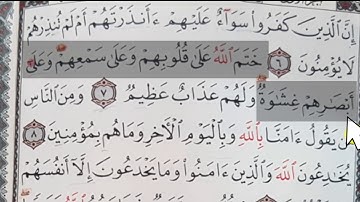 إِنَّ ٱلَّذِينَ كَفَرُوا۟ سَوَآءٌ عَلَيْهِمْ ءَأَنذَرْتَهُمْ أَمْ لَمْ تُنذِرْهُمْ
لَا يُؤْمِنُونَ ٦ خَتَمَ ٱللَّهُ عَلَىٰ قُلُوبِهِمْ وَعَلَىٰ سَمْعِهِمْ وَعَلَىٰٓ
أَبْصَٰرِهِمْ غِشَٰوَةٌ وَلَهُمْ عَذَابٌ عَظِيمٌ ٧ وَمِنَ ٱلنَّاسِ
مَن يَقُولُ ءَامَنَّا بِٱللَّهِ وَبِٱلْيَوْمِ ٱلْءَاخِرِ وَمَا هُم بِمُؤْمِنِينَ ٨
يُخَٰدِعُونَ ٱللَّهَ وَٱلَّذِينَ ءَامَنُوا۟ وَمَا يَخْدَعُونَ إِلَّآ أَنفُسَهُمْ